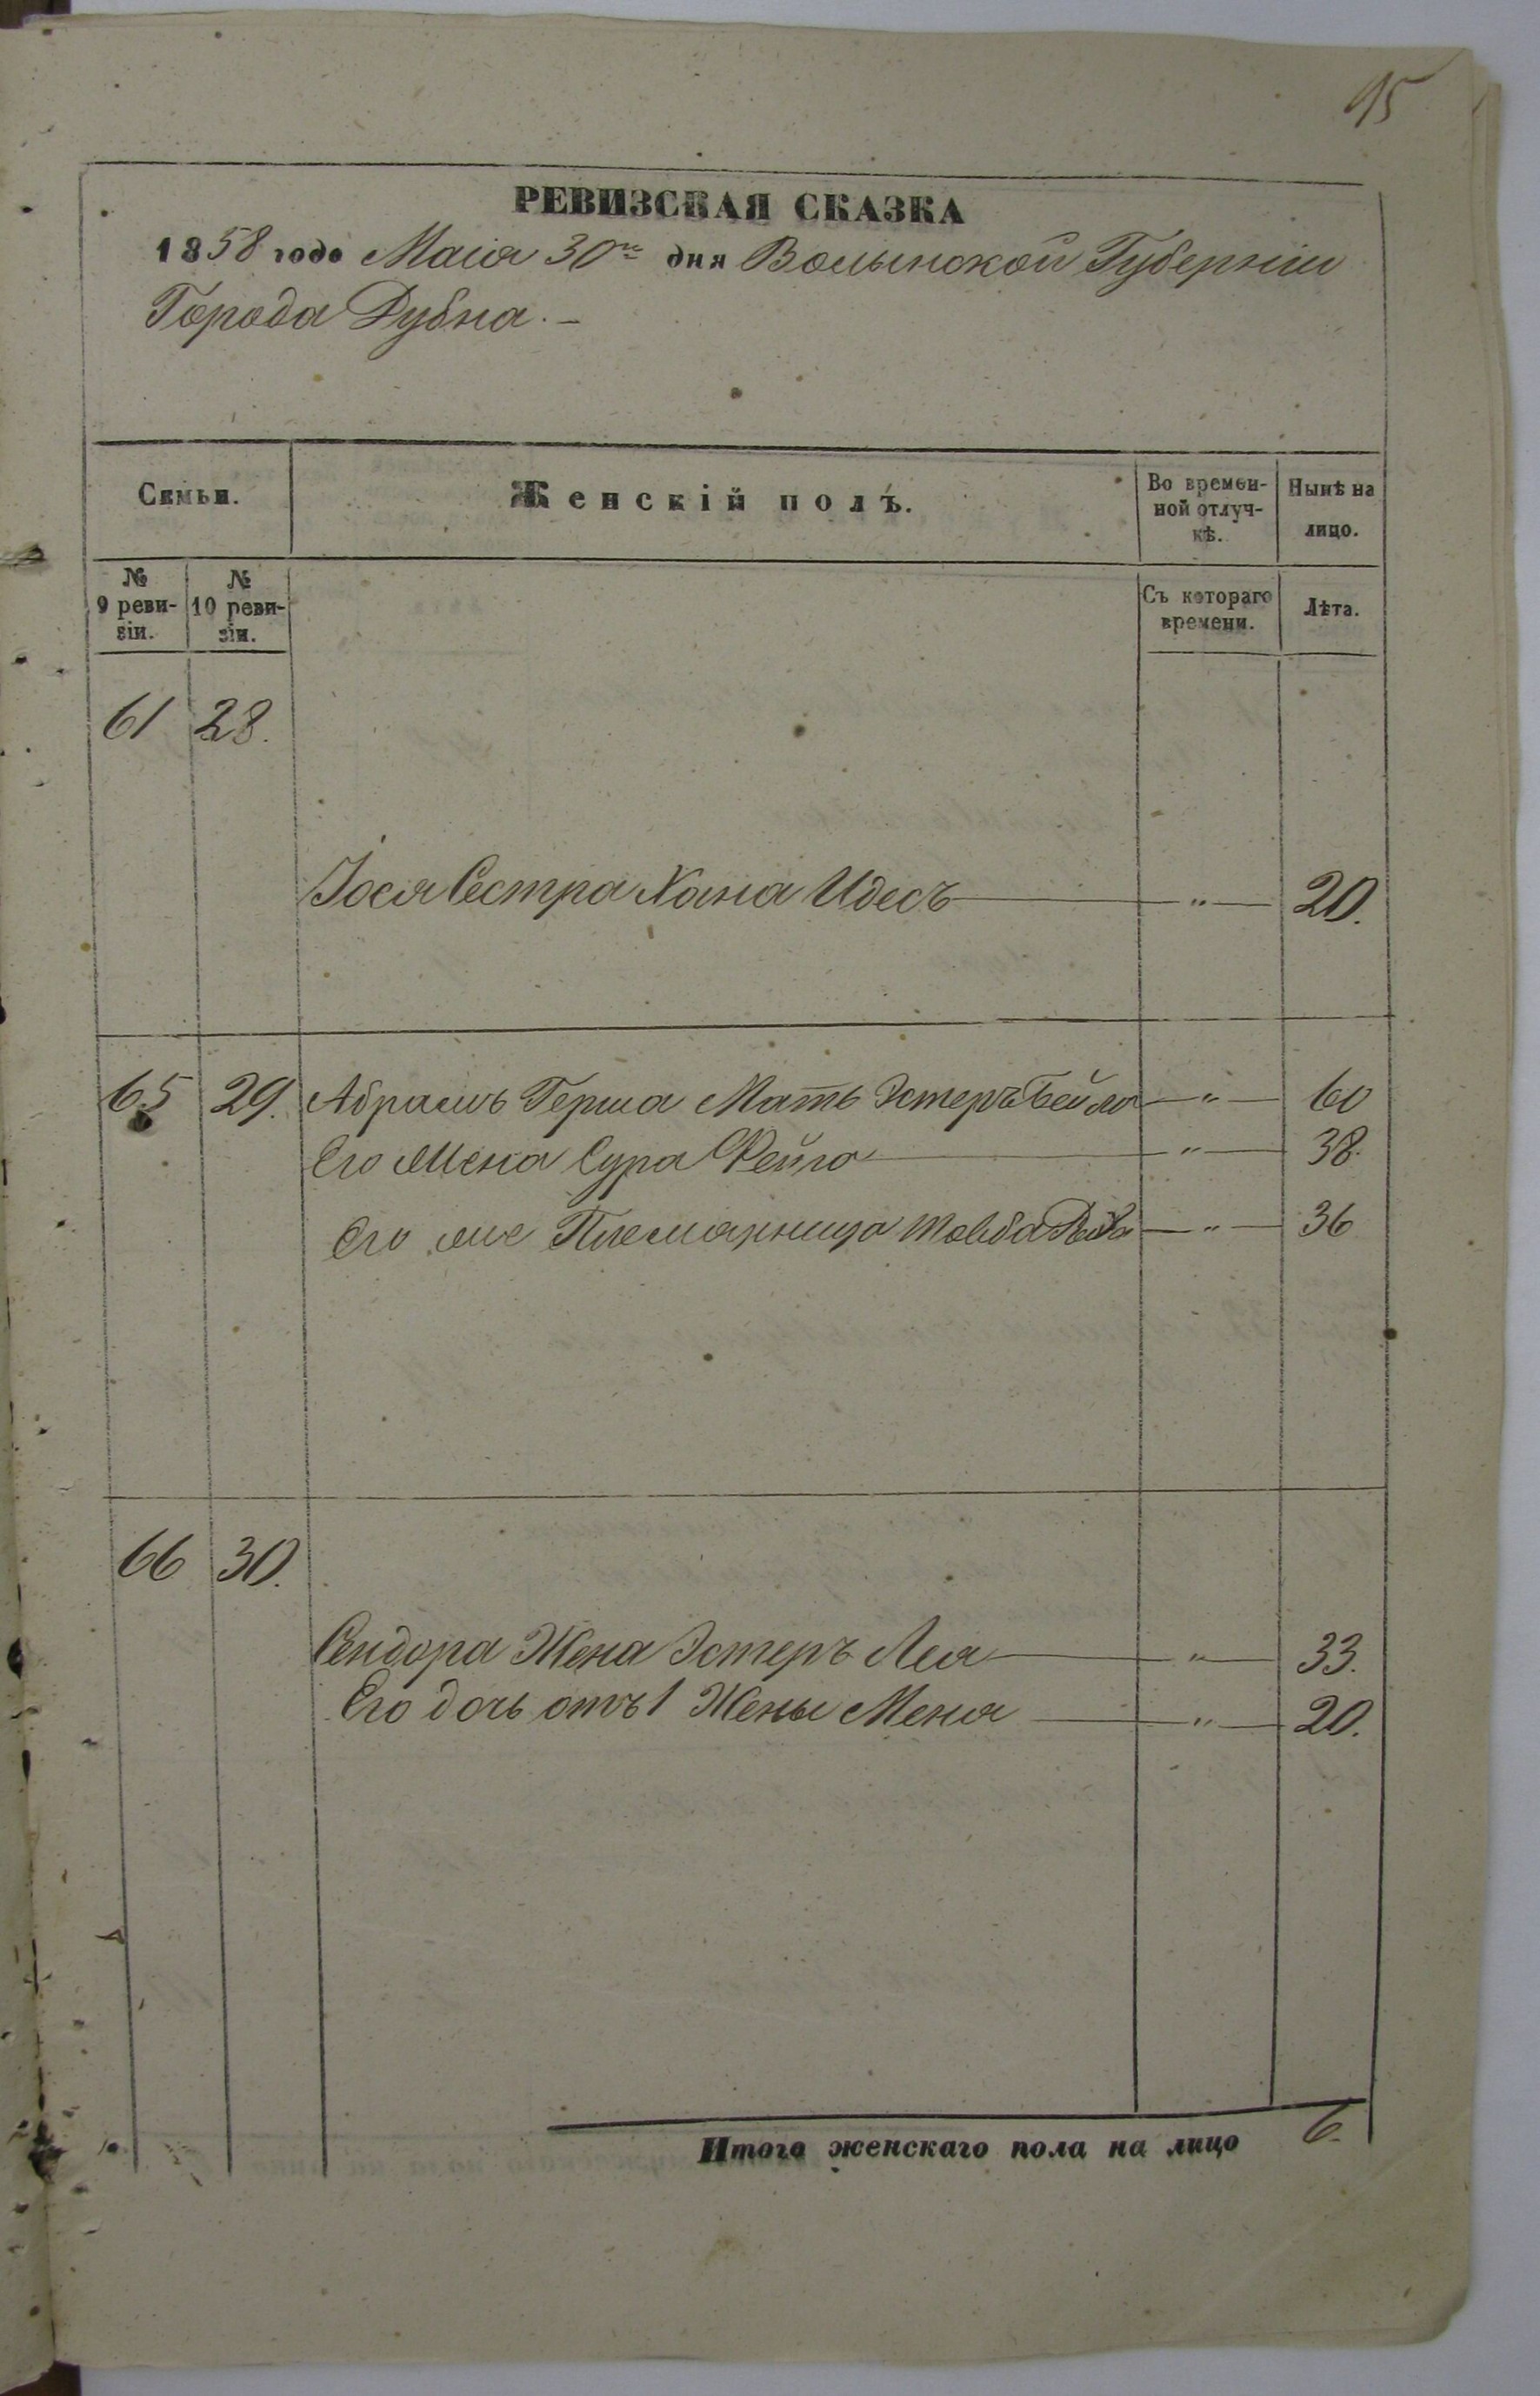 95
РЕВИЗСКАЯ СКАЗКА
1858 года Маія 30го дня Волынской Губерніи
Города Дубна. —
Семьи.
Женскій полъ.
Во времен-
ной отлуч-
кѣ.
Нынѣ на
лицо.
№
9 реви-
зіи.
№
10 реви-
зіи.
Съ котораго
времени.
Лѣта.
61 28.
Іося Сестра Хана Идесъ — „ — 20.
65 29. Абрамъ Герша Мать Эстеръ Бейла — „ — 60
Его Жена Сура Фейга — „ — 38.
Его же Племянница — „ — 36
66 30.
Сендора Жена Эстеръ Лея — „ — 33.
Его дочь отъ 1 Жены Меня — „ — 20.
Итого женскаго пола на лицо 6.